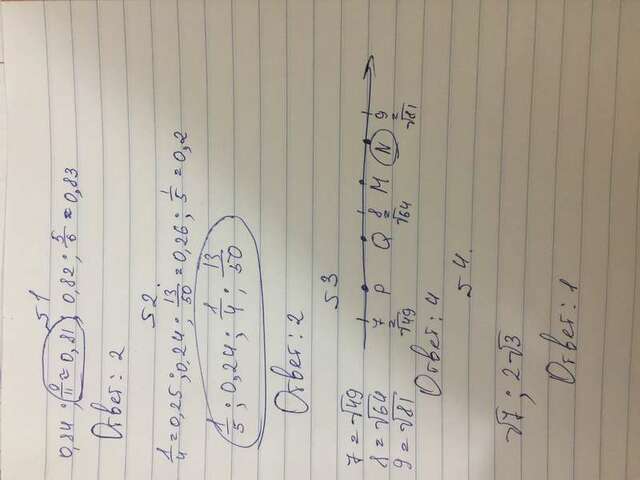 51
0,84 ; 9/11 ≈ 0,81 ; 0,82 ; 5/6 ≈ 0,83
Ответ: 2
52.
1/4 = 0,25 ; 0,24 ; 13/50 = 0,26 ; 1/5 = 0,2
1/5 ; 0,24 ; 1/4 ; 13/50
Ответ: 2
53
7 = √49
8 = √64
9 = √81
7 P Q 8 M N 9
= = =
√49 √64 √81
Ответ: 4
54.
√7 ; 2√3
Ответ: 1